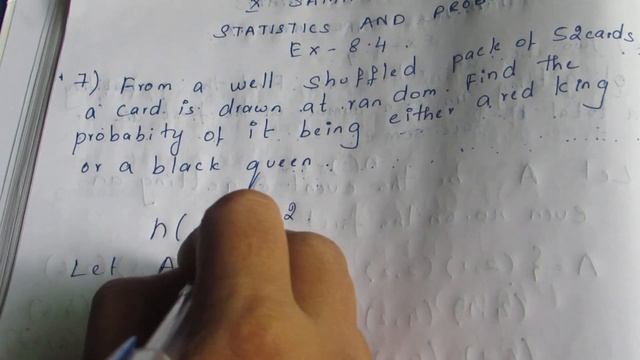 STATISTICS AND PROB
Ex - 8.4.
7) From a well shuffled pack of 52cards
a card is drawn at random. Find the
probabity of it being either a red king
or a black queen.
n( 2
Let A